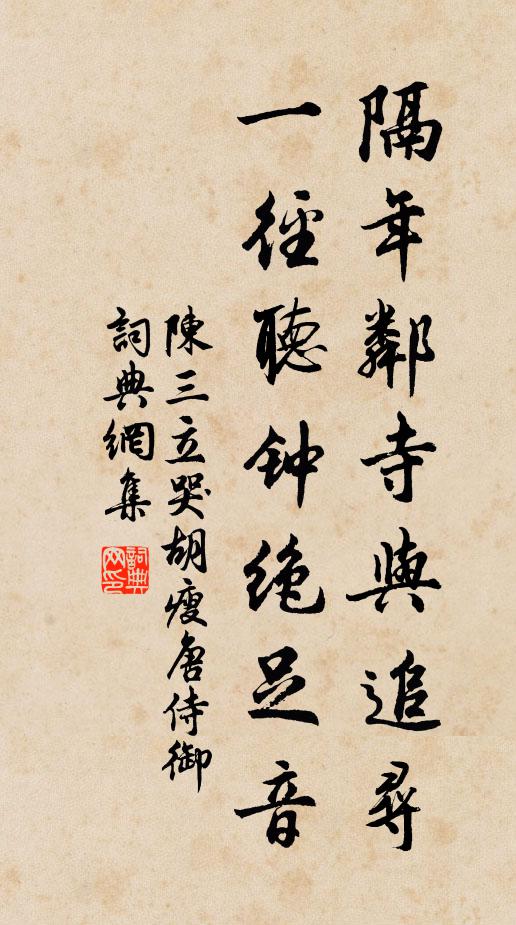 隔年鄰寺與追尋
一徑聽钟絶足音
陳三立哭胡瘦唐侍御
詞典網集
詞典网印